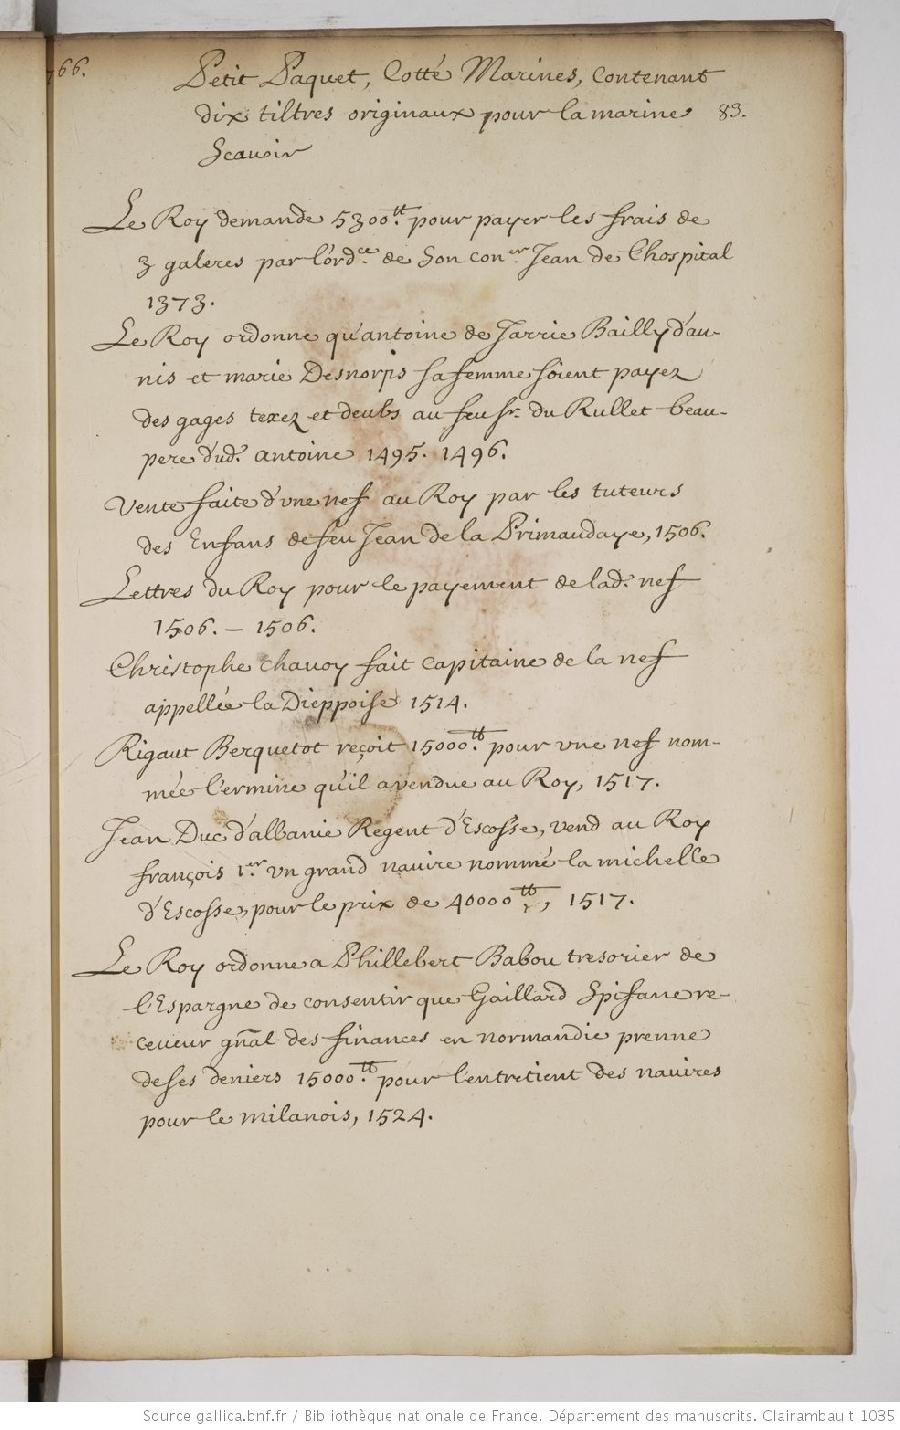 766.
Petit Paquet, Cotté Marines, contenant
dix tiltres originaux pour la marine 83.
Scavoir
Le Roy demande 5300ᵗᵗ pour payer les frais de
3 galeres par l'ordᶜᵉ de son conᵉʳ Jean de Lhospital
1373.
Le Roy ordonne qu'antoine de Jarrie Bailly d'au-
nis et marie Desnorps sa femme soient payez
des gages texez et deubs au feu Sʳ du Rullet beau-
pere dud. antoine 1495. 1496.
Vente faite d'une nef au Roy par les tuteurs
des Enfans de feu Jean de la Primaudaye, 1506.
Lettres du Roy pour le payement de lad. nef
1506. – 1506.
Christophe Chavoy fait capitaine de la nef
appellée la Dieppoise 1514.
Rigaut Berquetot reçoit 15000ᵗᵗ pour vne nef nom-
mée l'ermine qu'il a vendue au Roy, 1517.
Jean Duc d'albanie Regent d'Escosse, vend au Roy
françois 1.ᵉʳ vn grand navire nommé la michelle
d'Escosse, pour le prix de 40000ᵗᵗ, 1517.
Le Roy ordonne a Phillebert Babou tresorier de
l'Espargne de consentir que Gaillard Spifame re-
ceveur gñal des finances en normandie prenne
de ses deniers 15000ᵗᵗ pour l'entretient des navires
pour le milanois, 1524.
Source gallica.bnf.fr / Bibliothèque nationale de France. Département des manuscrits. Clairambault 1035